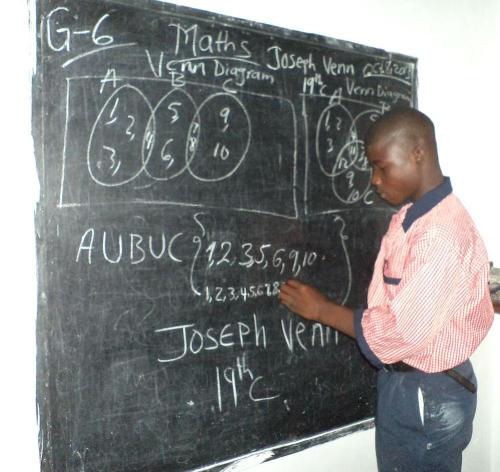 G-6
Maths Joseph Venn
Venn Diagram
19th C Venn Diagram
A B C
1, 5, 9,
2, 4 7
3, 6, 8 10
A
1, 2
3
12 11
9
10 C
AUBUC { 1, 2, 3, 5, 6, 9, 10 . }
1, 2, 3, 4, 5, 6, 7, 8,
JOSEPH Venn
19th C